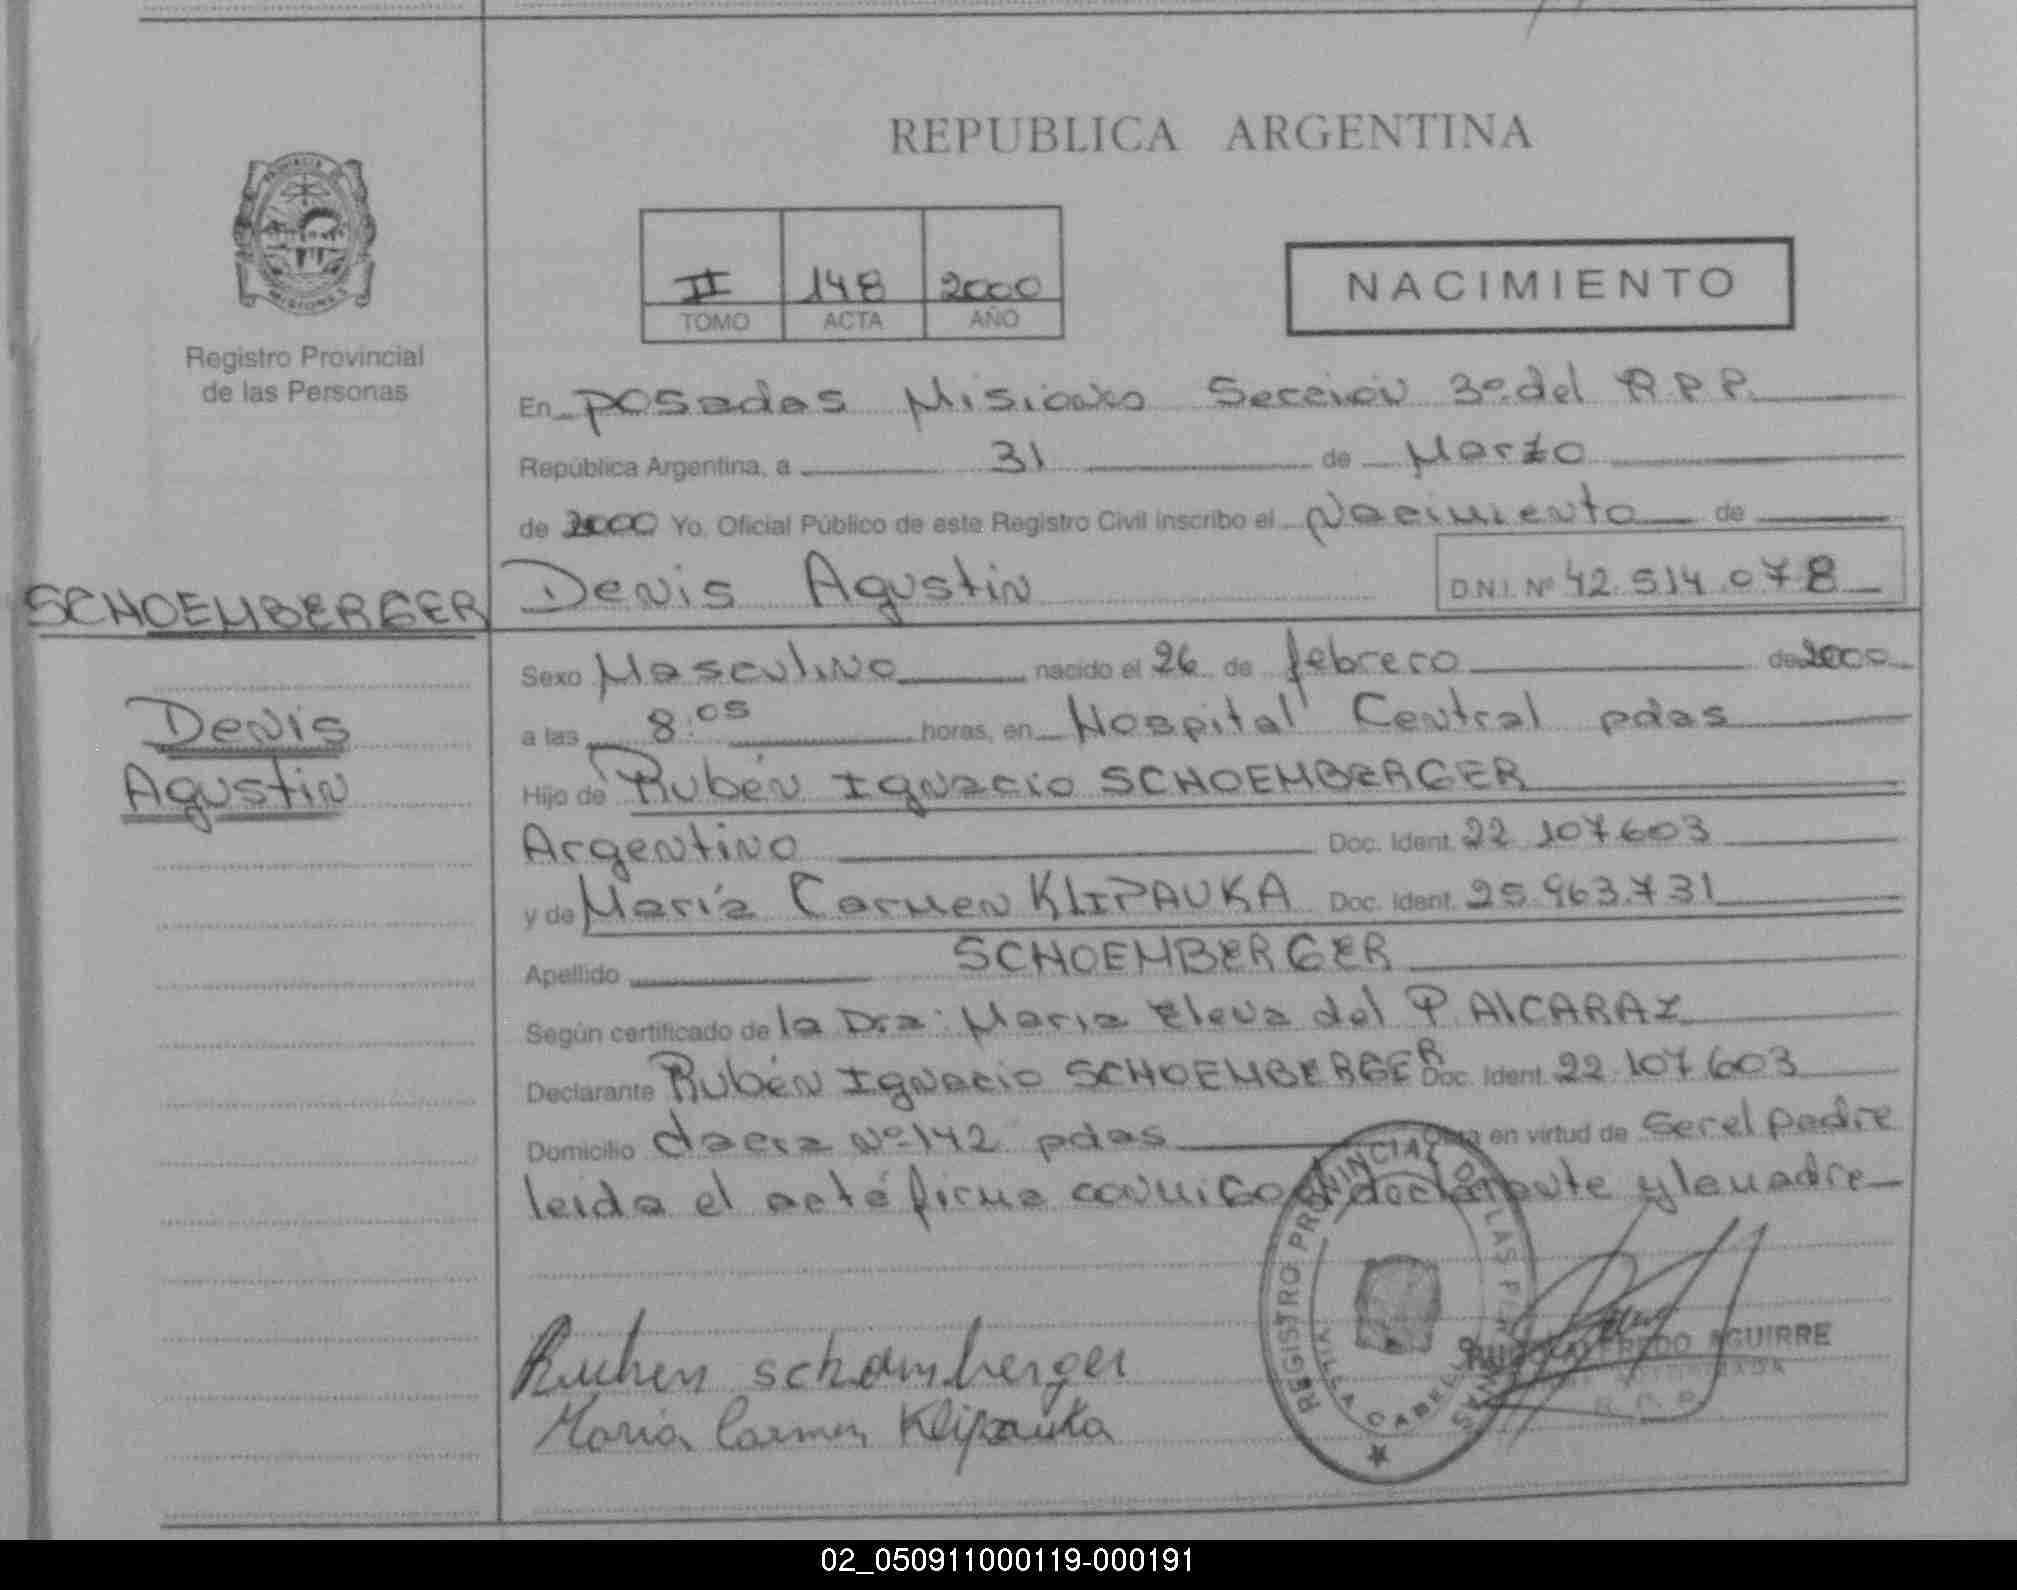 REPUBLICA ARGENTINA
PROVINCIA DE
MISIONES
Registro Provincial
de las Personas
II 148 2000
TOMO ACTA AÑO
NACIMIENTO
En Posadas Misiones Sección 3º del R.P.P.
República Argentina, a 31 de Marzo
de 2000 Yo, Oficial Público de este Registro Civil inscribo el Nacimiento de
SCHOEMBERGER
Denis Agustin
D.N.I. Nº 42.514.078
Denis
Agustin
Sexo Masculino nacido el 26 de febrero de 2000
a las 8:05 horas, en Hospital Central pdas
Hijo de Rubén Ignacio SCHOEMBERGER
Argentino Doc. Ident. 22.107.603
y de María Carmen KLIPAUKA Doc. Ident. 25.963.731
Apellido SCHOEMBERGER
Según certificado de la Dra: Maria Elena del P. AlCARAZ
Declarante Rubén Ignacio SCHOEMBERGER Doc. Ident. 22.107.603
Domicilio chacra Nº 142 pdas en virtud de ser el padre
leida el acta firma conmigo declarante y la madre
Ruben schomberger
Maria Carmen Klipauka
REGISTRO PROVINCIAL DE LAS PERSONAS
VILLA CABELLO
AGUIRRE
02_050911000119-000191